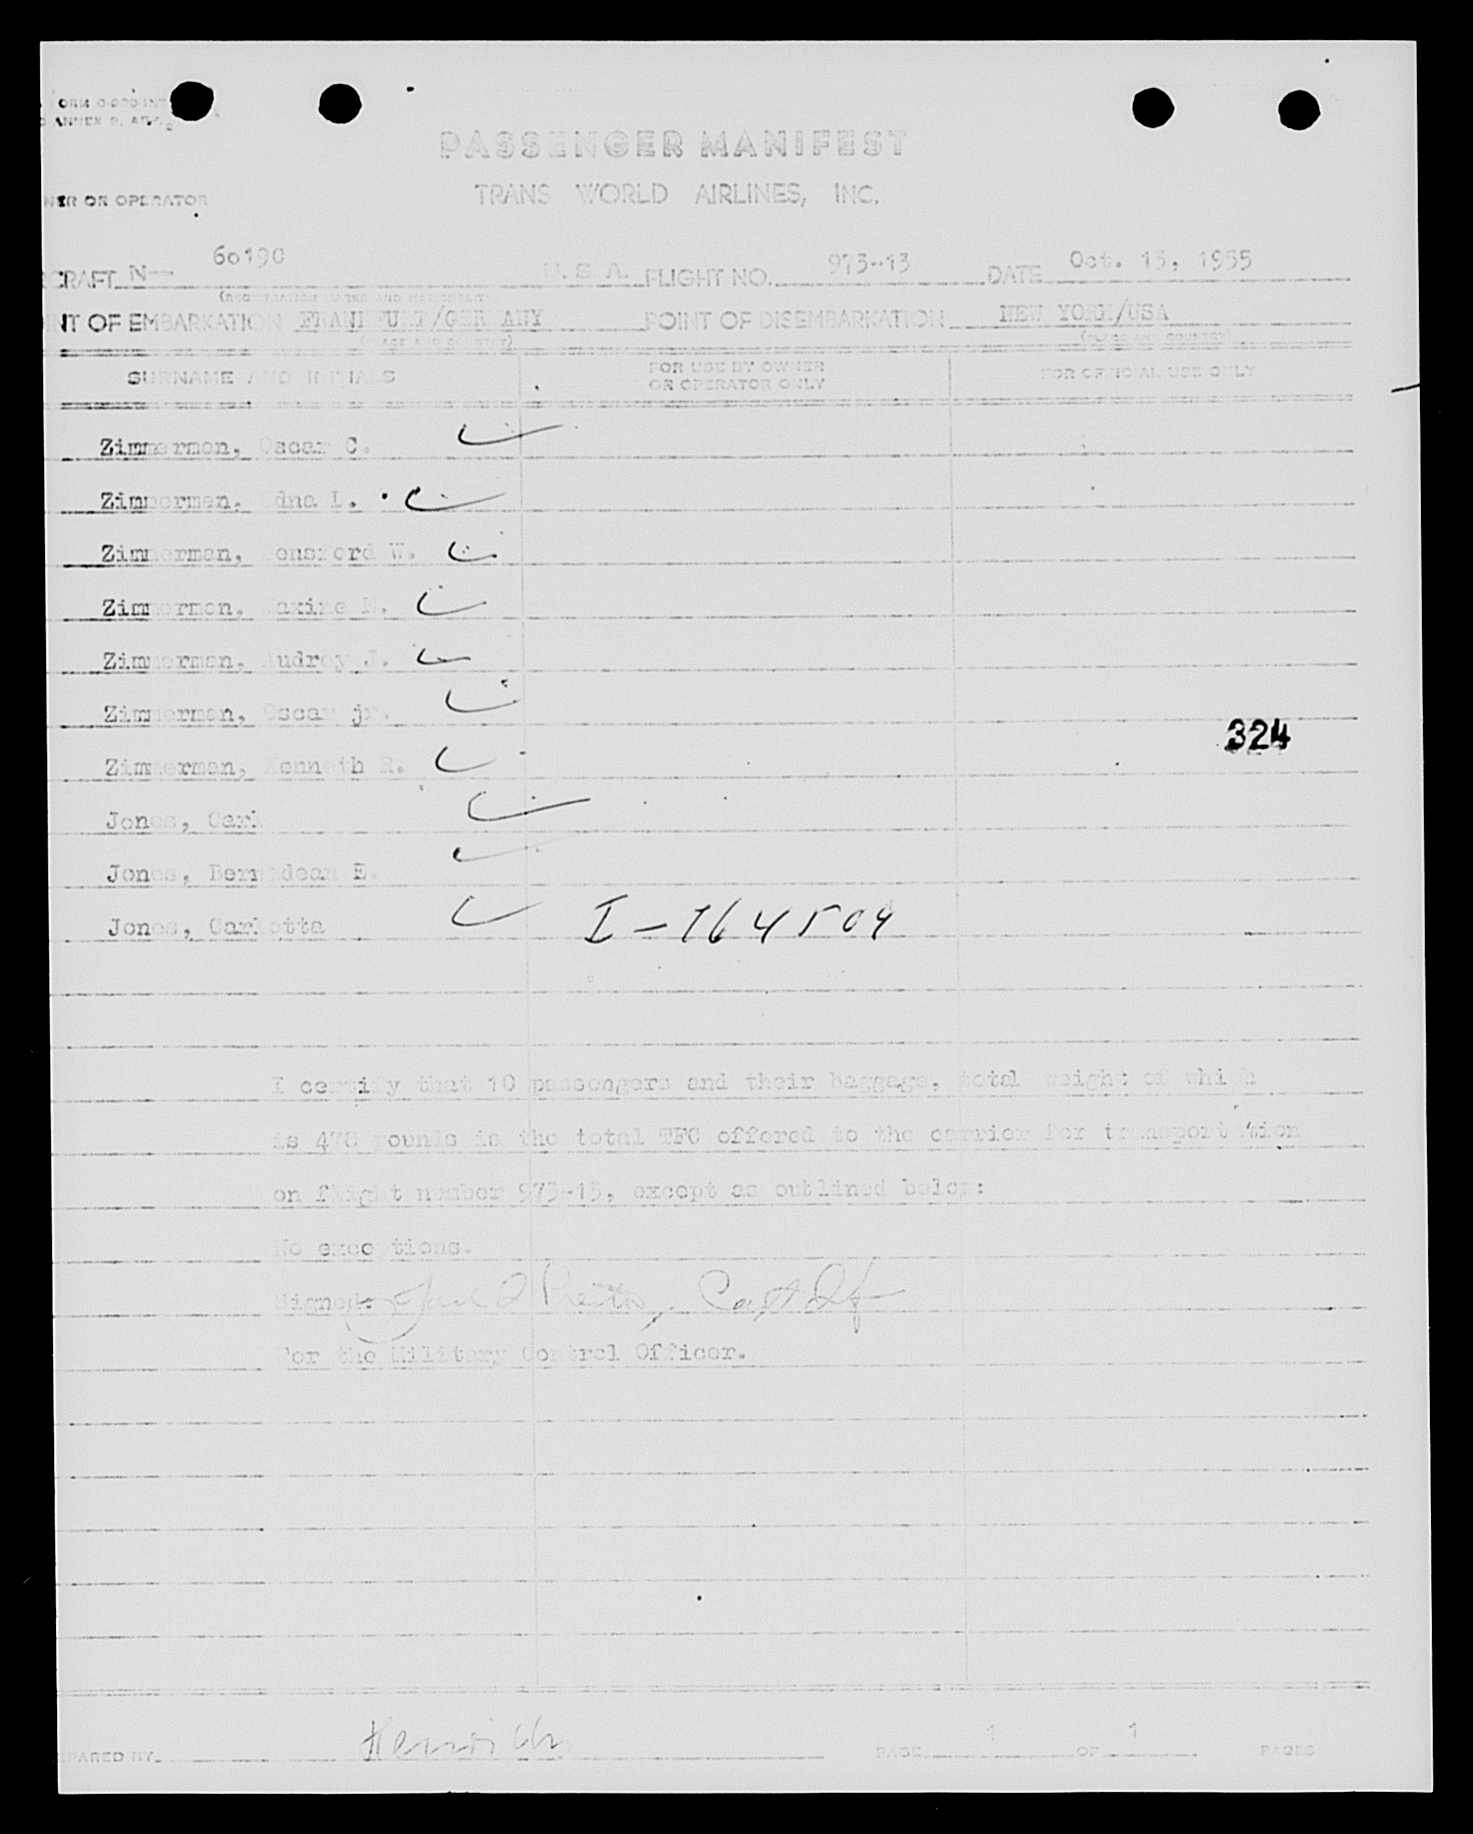 PASSENGER MANIFEST
TRANS WORLD AIRLINES, INC.
OR OPERATOR
CRAFT N— 60190 U. S. A. FLIGHT NO. 973-13 DATE Oct. 13, 1955
NT OF EMBARKATION FRANKFURT/GERMANY POINT OF DISEMBARKATION NEW YORK/USA
(PLACE AND COUNTRY) (PLACE AND COUNTRY)
SURNAME AND INITIALS FOR USE BY OWNER OR OPERATOR ONLY FOR OFFICIAL USE ONLY
Zimmerman, Oscar C.
Zimmerman, Edna L.
Zimmerman, W.
Zimmerman, Maxine
Zimmerman, Audrey J.
Zimmerman, Oscar jr.
324
Zimmerman, Kenneth R.
Jones, Carl
Jones, Bernadean E.
Jones, Carlotta I-764509
I certify that 10 passengers and their baggage, total weight of which
is 478 pounds is the total TFC offered to the carrier for transportation
on flight number 973-13, except as outlined below:
No exceptions.
Signed: Capt
For the Military Control Officer.
PARED BY PAGE 1 OF 1 PAGES